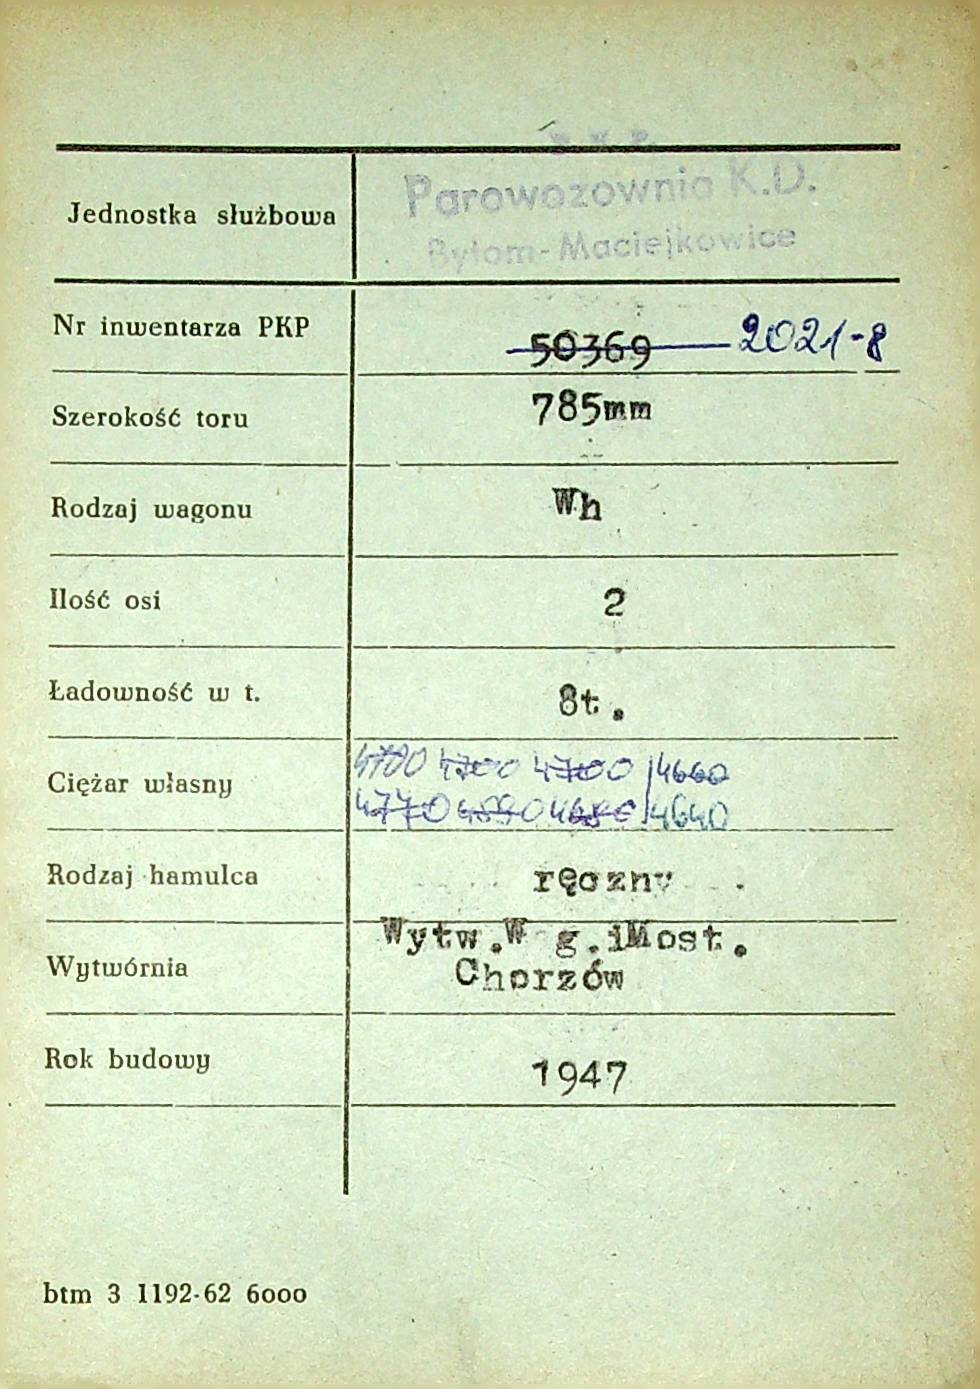 P. K. P.
Parowozownia K.D.
Bytom-Maciejkowice
Jednostka służbowa
Nr inwentarza PKP 50369 2021-8
Szerokość toru 785mm
Rodzaj wagonu Wh
Ilość osi 2
Ładowność w t. 8t.
Ciężar własny 4700 4700 4700 4660
4770 4640
Rodzaj hamulca ręczny
Wytwórnia Wytw.W g.iMost.
Chorzów
Rok budowy 1947
btm 3 1192-62 6000